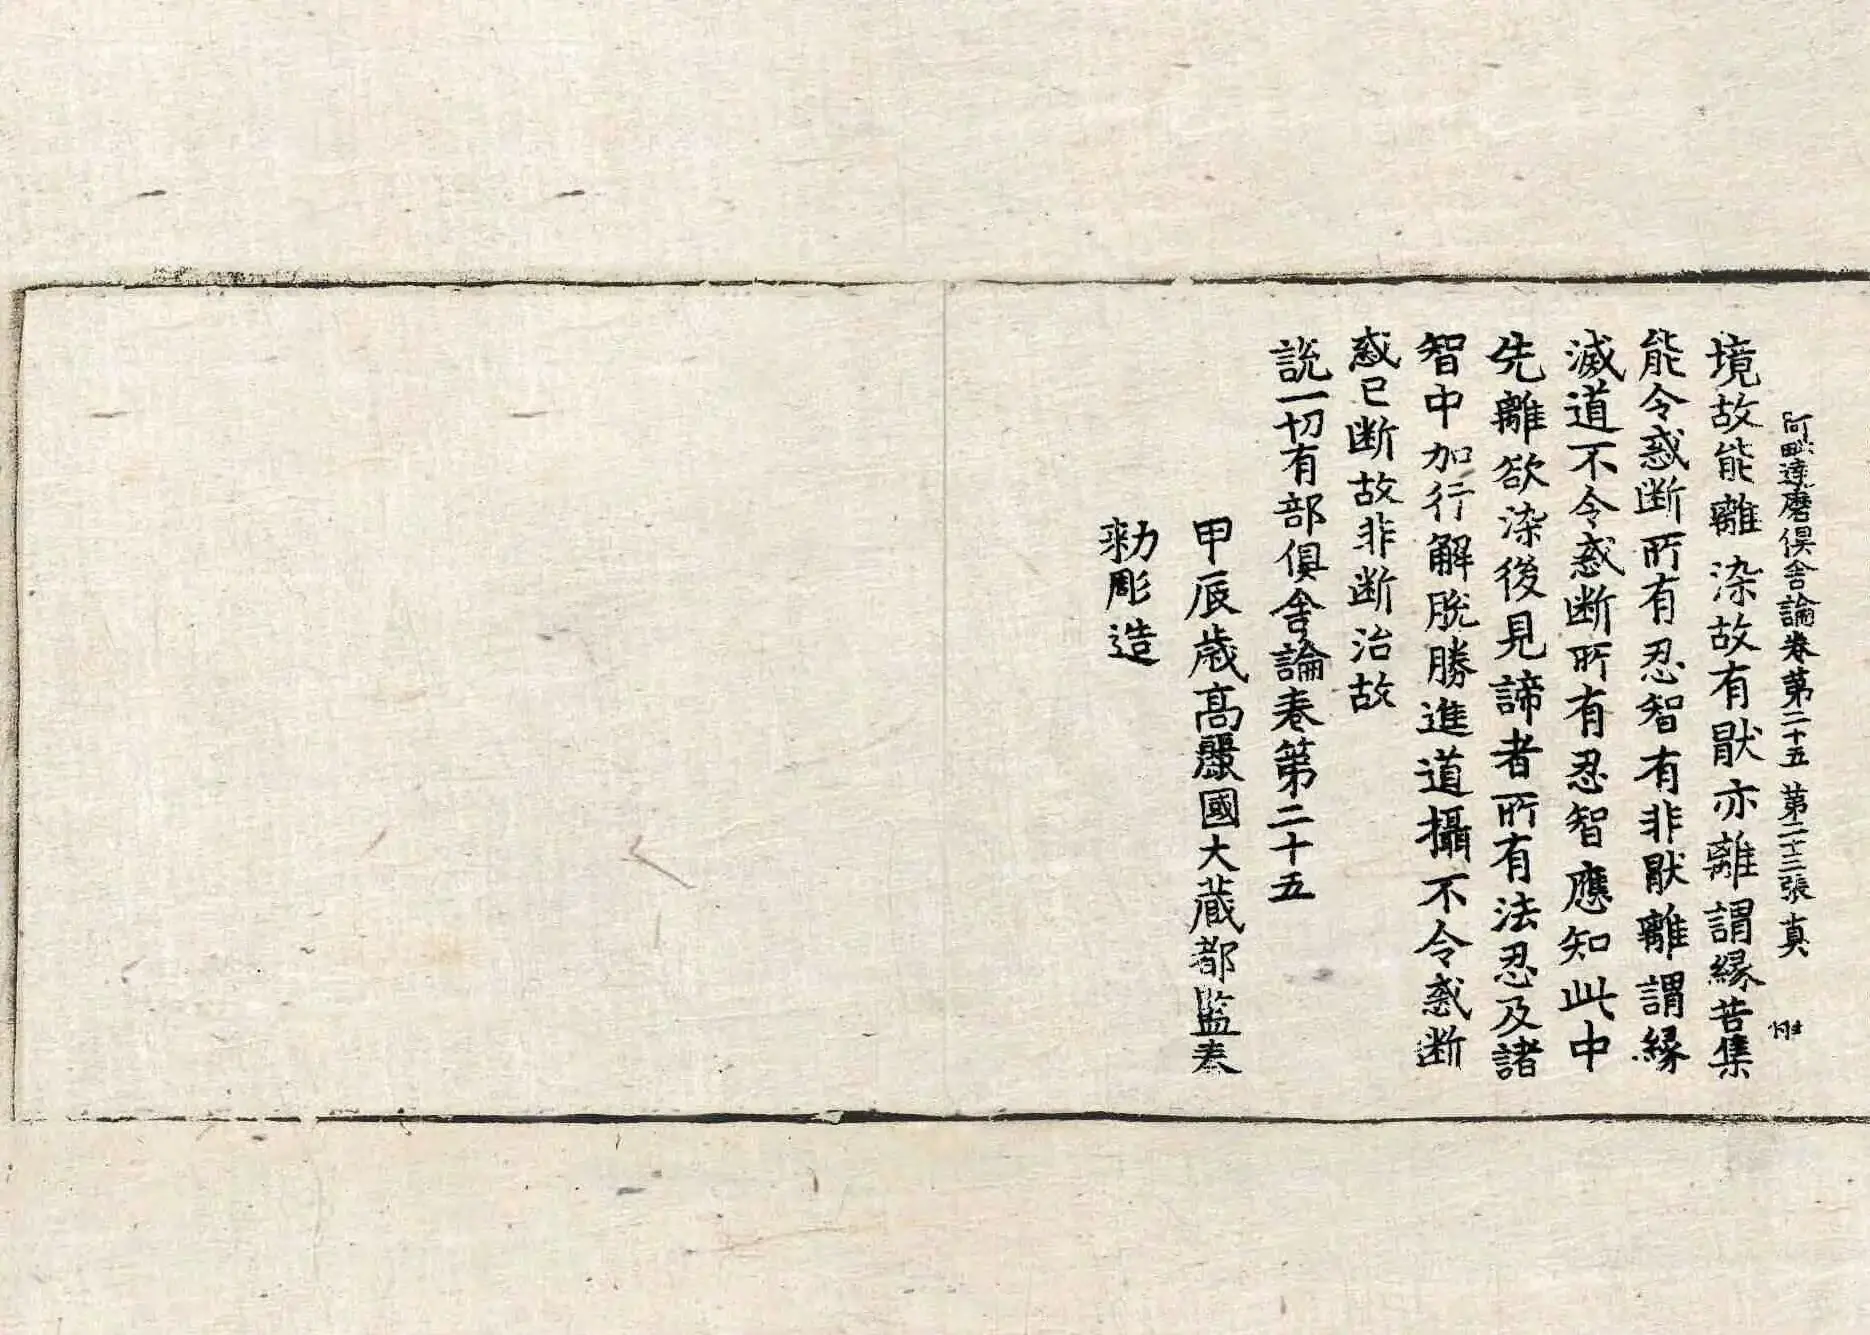 阿毗達磨俱舍論卷第二十五 第二十三張 真
境故能離染故有猒亦離謂縁苦集
能令惑断所有忍智有非猒離謂縁
滅道不令惑断所有忍智應知此中
先離欲染後見諦者所有法忍及諸
智中加行解脫勝進道攝不令惑断
惑已断故非断治故
說一切有部俱舍論卷第二十五
甲辰歲高麗國大藏都監奉
勑彫造